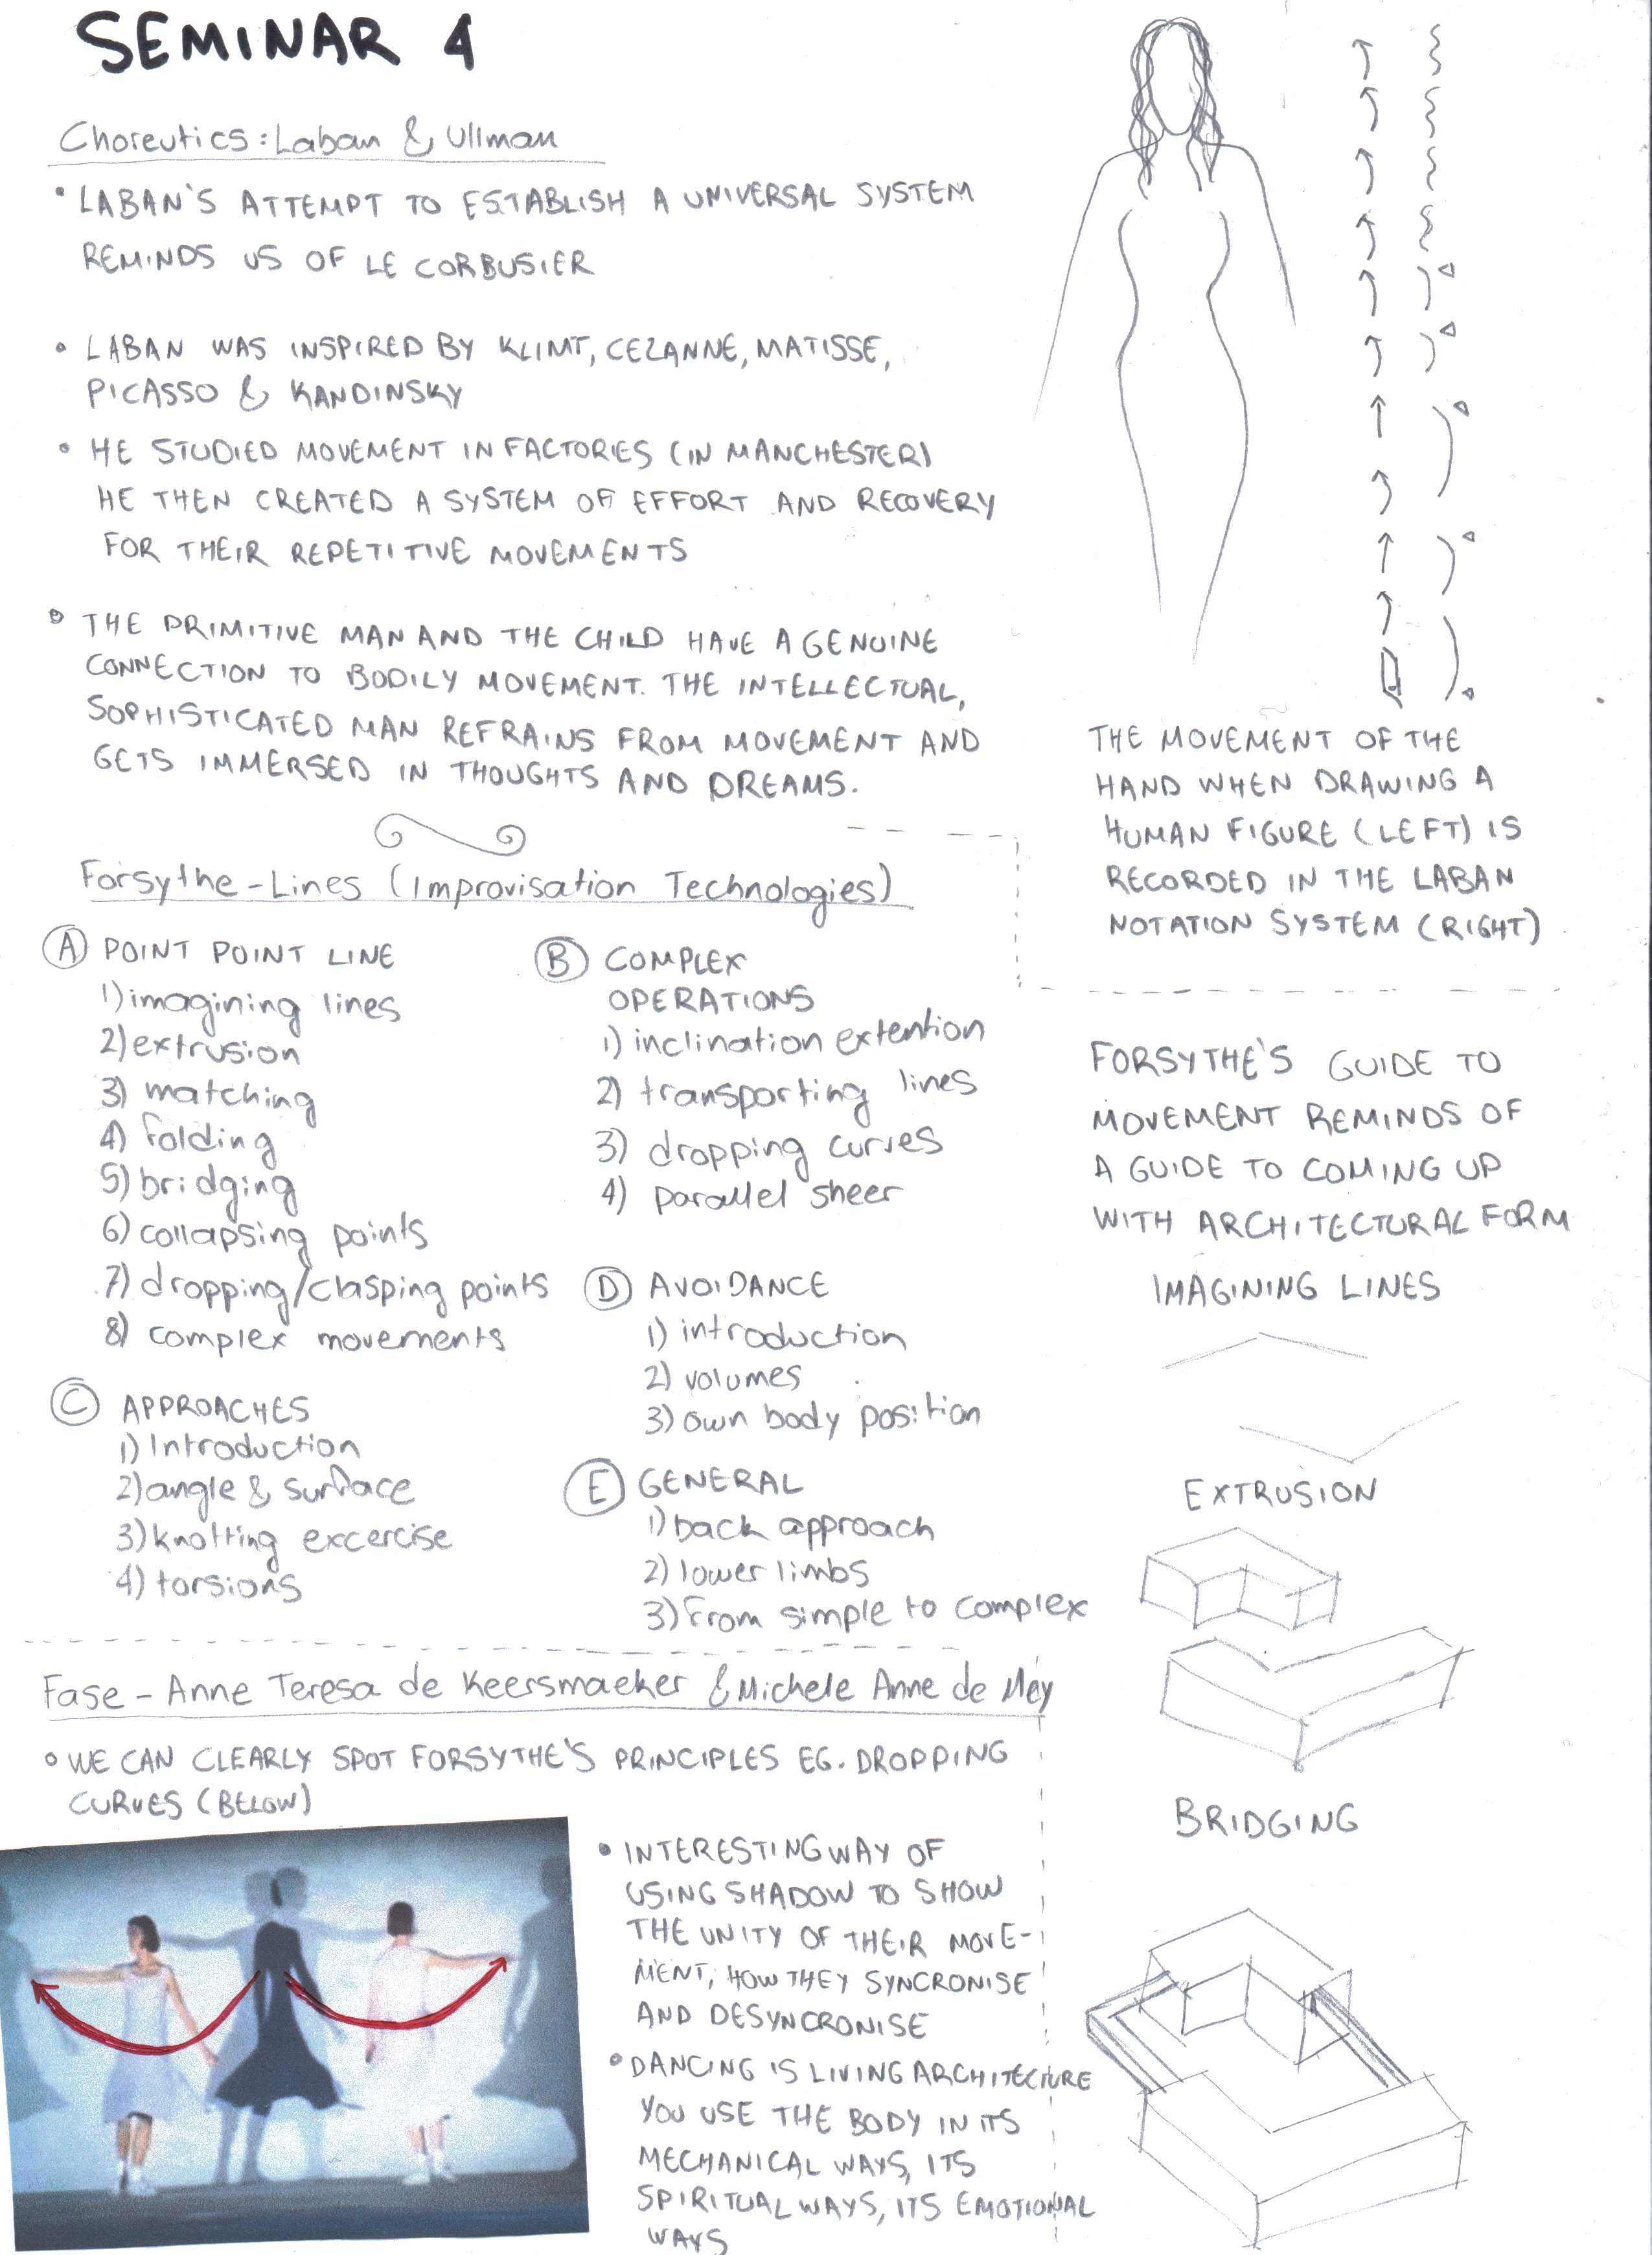 SEMINAR 4
Choreutics: Laban & Ullman
• LABAN'S ATTEMPT TO ESTABLISH A UNIVERSAL SYSTEM
REMINDS US OF LE CORBUSIER
• LABAN WAS INSPIRED BY KLIMT, CEZANNE, MATISSE,
PICASSO & KANDINSKY
• HE STUDIED MOVEMENT IN FACTORIES (IN MANCHESTER)
HE THEN CREATED A SYSTEM OF EFFORT AND RECOVERY
FOR THEIR REPETITIVE MOVEMENTS
• THE PRIMITIVE MAN AND THE CHILD HAVE A GENUINE
CONNECTION TO BODILY MOVEMENT. THE INTELLECTUAL,
SOPHISTICATED MAN REFRAINS FROM MOVEMENT AND
GETS IMMERSED IN THOUGHTS AND DREAMS.
THE MOVEMENT OF THE
HAND WHEN DRAWING A
HUMAN FIGURE (LEFT) IS
RECORDED IN THE LABAN
NOTATION SYSTEM (RIGHT)
Forsythe - Lines (Improvisation Technologies)
A POINT POINT LINE
1) imagining lines
2) extrusion
3) matching
4) folding
5) bridging
6) collapsing points
7) dropping/clasping points
8) complex movements
B COMPLEX
OPERATIONS
1) inclination extention
2) transporting lines
3) dropping curves
4) parallel sheer
C APPROACHES
1) Introduction
2) angle & surface
3) knotting excercise
4) torsions
D AVOIDANCE
1) introduction
2) volumes
3) own body position
E GENERAL
1) back approach
2) lower limbs
3) From simple to complex
FORSYTHE'S GUIDE TO
MOVEMENT REMINDS OF
A GUIDE TO COMING UP
WITH ARCHITECTURAL FORM
IMAGINING LINES
EXTRUSION
BRIDGING
Fase - Anne Teresa de Keersmaeker & Michele Anne de Mey
• WE CAN CLEARLY SPOT FORSYTHE'S PRINCIPLES EG. DROPPING
CURVES (BELOW)
• INTERESTING WAY OF
USING SHADOW TO SHOW
THE UNITY OF THEIR MOVE-
MENT, HOW THEY SYNCRONISE
AND DESYNCRONISE
• DANCING IS LIVING ARCHITECTURE
YOU USE THE BODY IN ITS
MECHANICAL WAYS, ITS
SPIRITUAL WAYS, ITS EMOTIONAL
WAYS